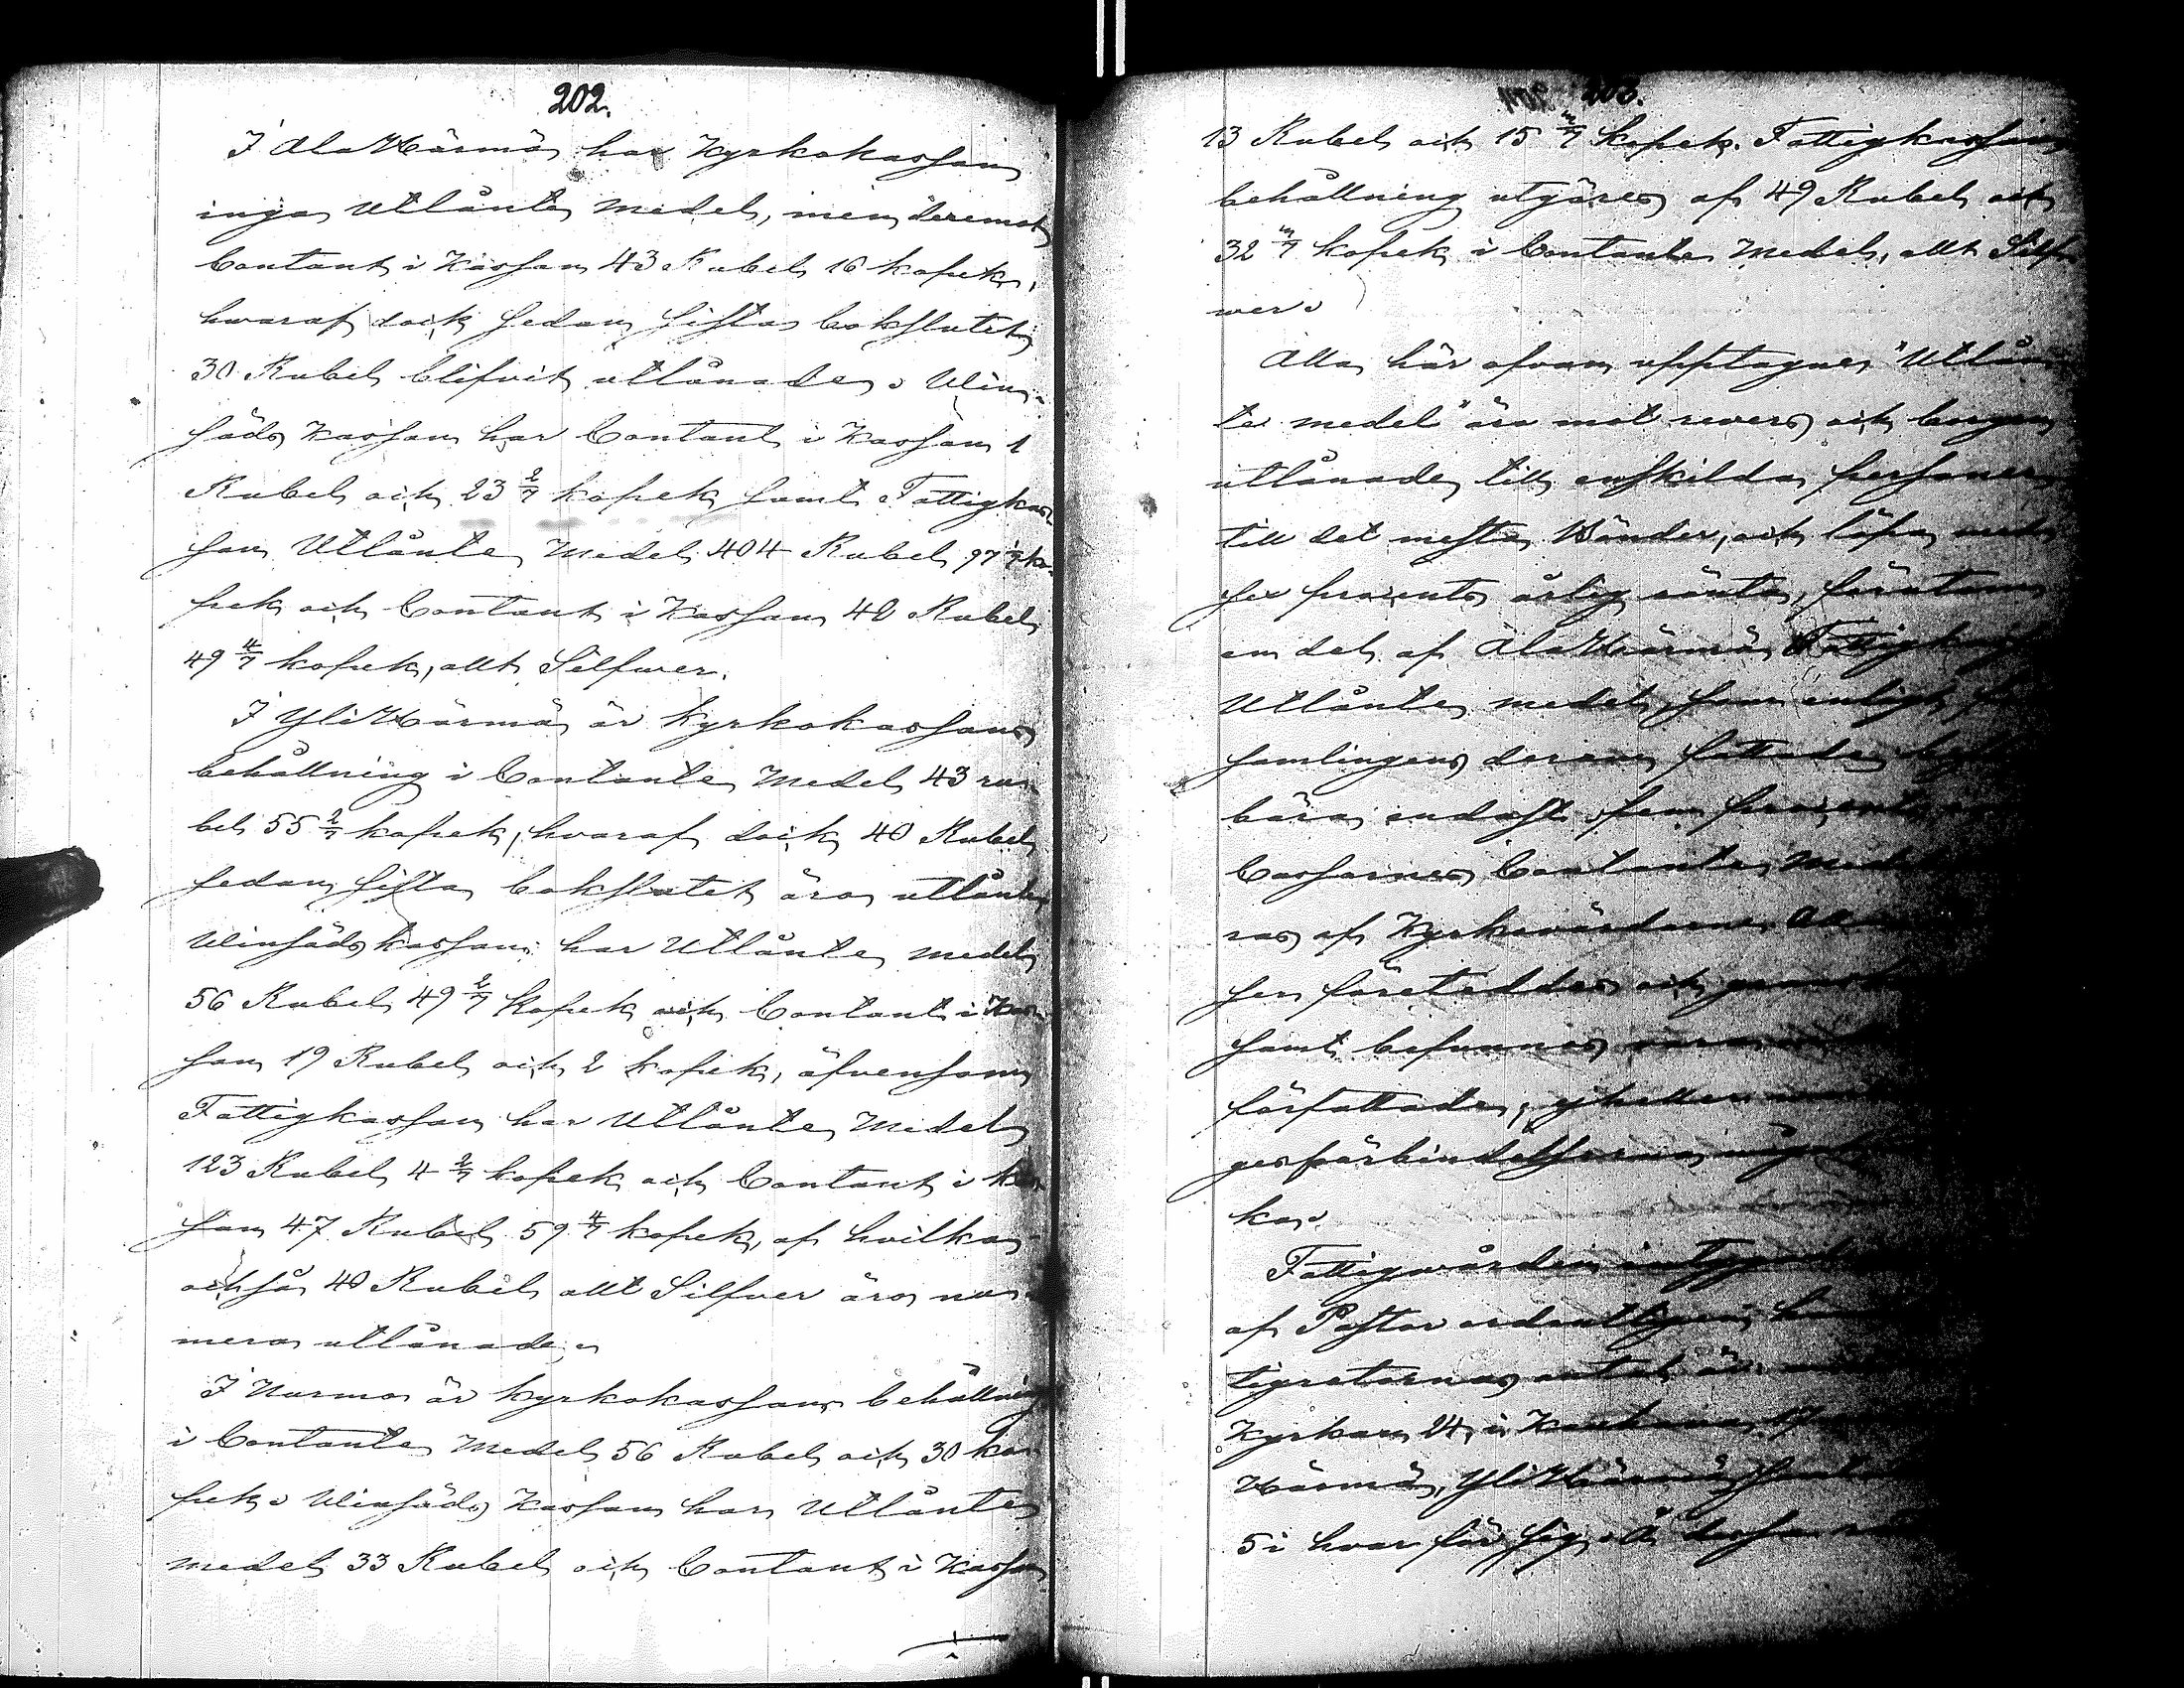 202.
I Ala Härmä har Kyrkokassan
inga Utlånte Medel, men deremot
Contant i Kassan 43 Rubel 16 kopek,
hwaraf dock sedan sista bokslutet
30 Rubel blifvit utlånade. Win-
säds Kassan har Contant i Kassan 1
Rubel och 23 2/7 kopek samt Fattigkas-
san Utlånte Medel 404 Rubel 97 ko-
pek och Contant i Kassan 40 Rubel
49 4/7 kopek, allt Silfwer.
I Yli Härmä är Kyrkokassans
behållning i Contante Medel 43 ru-
bel 55 2/7 kopek, hvaraf dock 40 Rubel
sedan sista bokslutet äro utlånte
Winsäds kassan har Utlånte medel
56 Rubel 49 2/7 kopek och Contant i Kas-
san 19 Rubel och 2 kopek, äfvensom
Fattigkassan har Utlånte Medel
123 Rubel 4 2/7 kopek och Contant i Kas-
san 47 Rubel 59 4/7 kopek, af hvilka
också 40 Rubel allt Silfver äro nu-
mera utlånade.
I Nurmo är kyrkokassans behållning
i Contante Medel 56 Rubel och 30 ko-
pek. Winsäds Kassan har Utlånte
medel 33 Rubel och Contant i Kassan
203.
13 Rubel och 15 3/7 kopek. Fattigkassans
behållning utgöres af 49 Rubel och
32 3/7 kopek i Contante Medel, allt Silf-
wer.
Alla här ofvan upptagne "Utlån-
te medel" äro mot revers och borgen
utlånade till enskilda personer
till det mesta Bönder, och löpa med
sex procents årlig ränta, förutom
en del af Ala Härmä Fattigkassas
Utlånte medel, som enligt för-
samlingens derom fattade
bära endast fem procent
Cassornes Contante Medel
ras af Kyrkowärdarne. Alla
sen företeddes och
samt befunnos vara
författade, ej heller
gesförbindelserna
ka.
Fattigvården
af Pastor ordentligen
tigrotarnas antal är
Kyrkan 24, i Kauhava 17
Härmä, Yli Härmä samt
5 i hvar för sig.